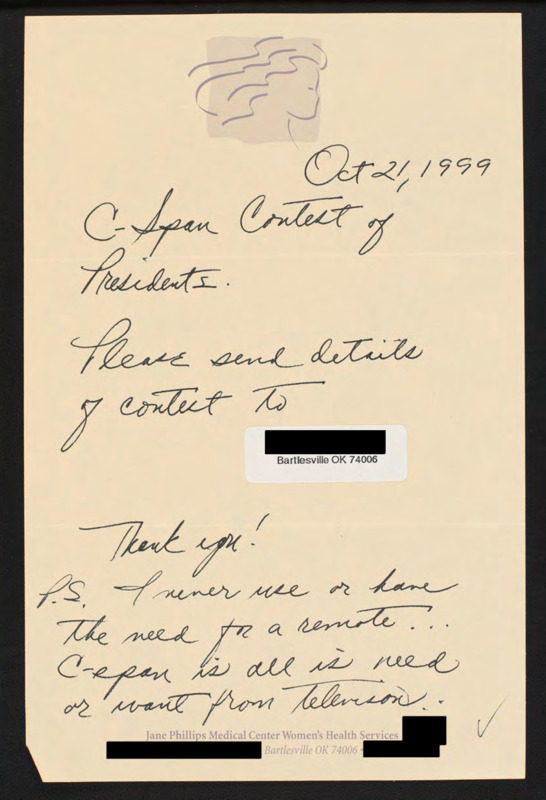 Oct 21, 1999
C-Span Contest of
Presidents.
Please send details
of contest to
Bartlesville OK 74006
Thank you!
P.S. I never use or have
the need for a remote...
C-span is all is need
or want from televison..
Jane Phillips Medical Center Women's Health Services
Bartlesville OK 74006 •